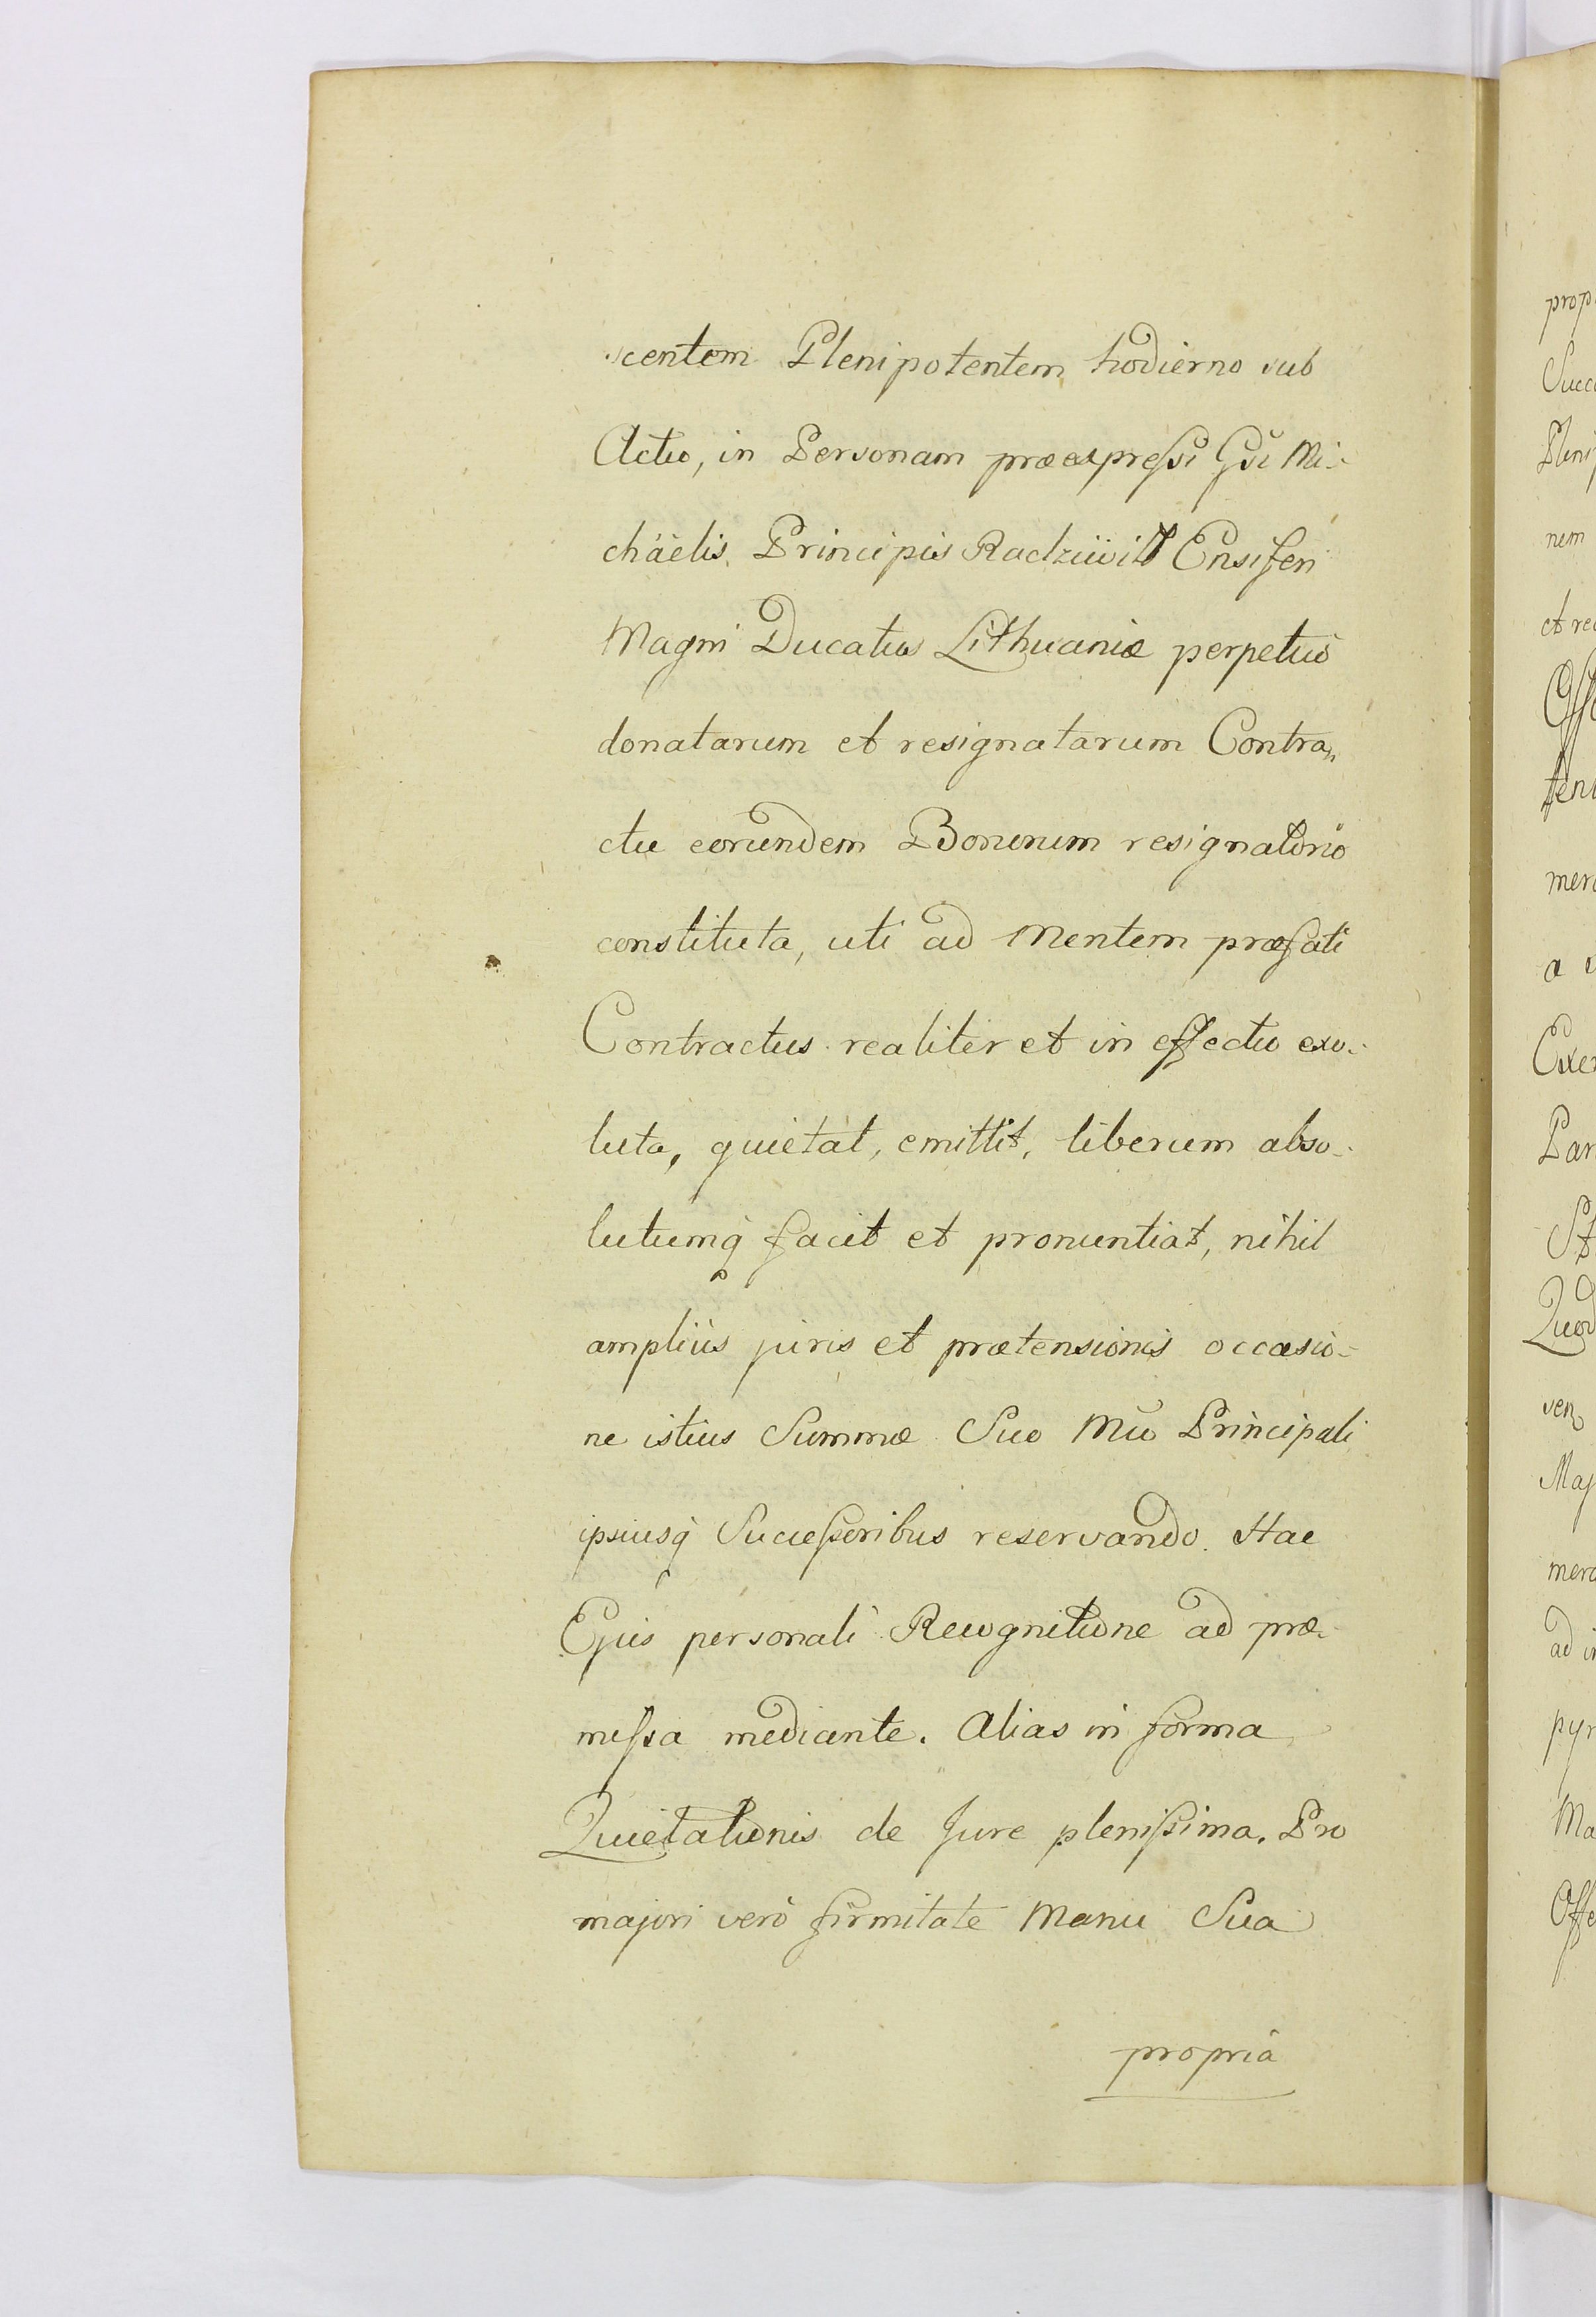 scentem Plenipotentem hodierno sub
Actu, in Personam præexpreſsi Gsi Mi-
chäelis Principis Radziwiłł Ensiferi
Magni Ducatus Lithuaniæ perpetuo
donatarum et resignatarum Contra„
ctu eorundem Bonorum resignatorio
constituta, uti ad Mentem præfati
Contractus realiter et in effectu exo-
luta, quietat, emittit, liberum abso-
lutumq facit et pronuntiat, nihil
ampliùs juris et prætensionis occasio-
ne istius Summæ Suo Mũo Principali
ipsiusq Succeſsoribus reservando. Hac
Ejus personali Recognitione ad præ-
miſsa mediante. Alias in forma
Quietationis de Jure pleniſsima. Pro
majori verò firmitate Manu Sua
propriâ
prop
Succ
Pleni
nem
et re
mer
a
Exe
Par
Quod
ven
Maj
mer
ad i
pyr
Ma
Offe